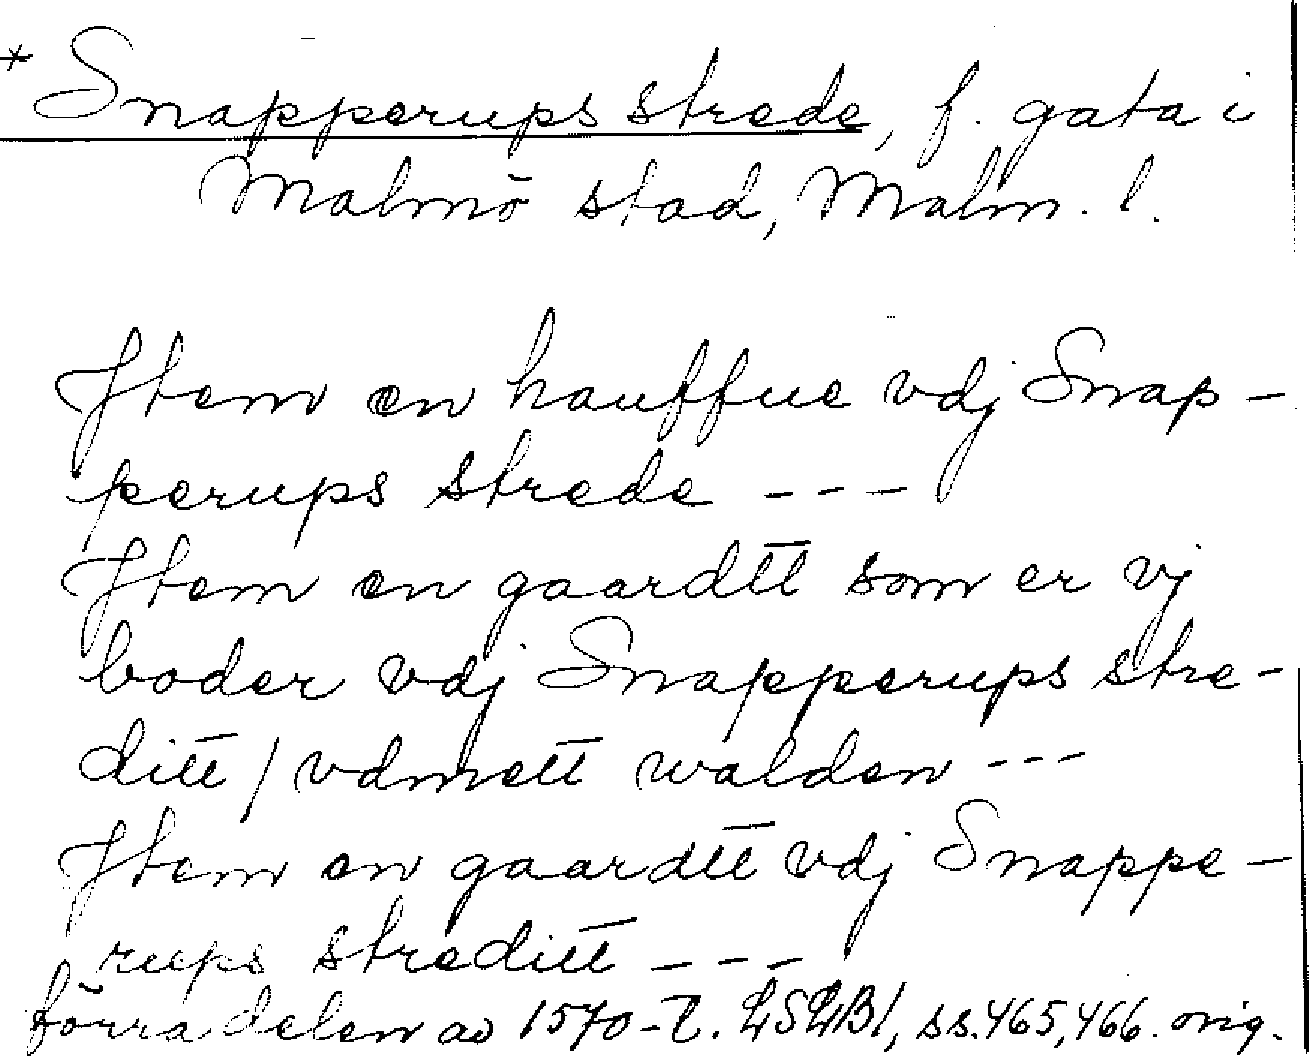 * Snapperups strede, f. gata i
Malmö stad, Malm. l.
Jtem en hauffue vdj Snap-
perups strede ---
Jtem en gaardtt som er vj
boder vdj Snapperups stre-
ditt / vdmett walden ---
Jtem en gaardtt vdj Snappe-
rups streditt ---
förra delen av 1570-t. LSLB1, ss. 465, 466. orig.